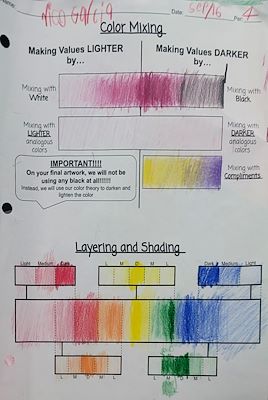 Name: Nico Garcia Date: Sep/16 Per: 4
Color Mixing
Making Values LIGHTER by…
Making Values DARKER by…
Mixing with White
Mixing with Black
Mixing with LIGHTER analogous colors
Mixing with DARKER analogous colors
IMPORTANT!!!!
On your final artwork, we will not be using any black at all!!!!!!
Instead, we will use our color theory to darken and lighten the color
Mixing with Compliments
Layering and Shading
Light Medium Dark
L M D M L
Dark Medium Light
L M D M L
L M D M L